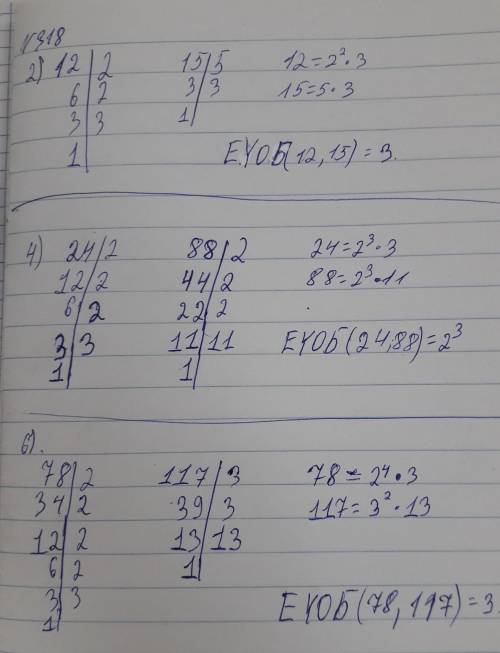 №318
2) 12 | 2 15 | 5 12=2²·3
6 | 2 3 | 3 15=5·3
3 | 3 1
1 ЕҮОБ(12,15)=3.
4) 24 | 2 88 | 2 24=2³·3
12 | 2 44 | 2 88=2³·11
6 | 2 22 | 2
3 | 3 11 | 11 ЕҮОБ(24,88)=2³
1 1
6).
78 | 2 117 | 3 78=2⁴·3
34 | 2 39 | 3 117=3²·13
12 | 2 13 | 13
6 | 2 1
3 | 3 ЕҮОБ(78,117)=3
1